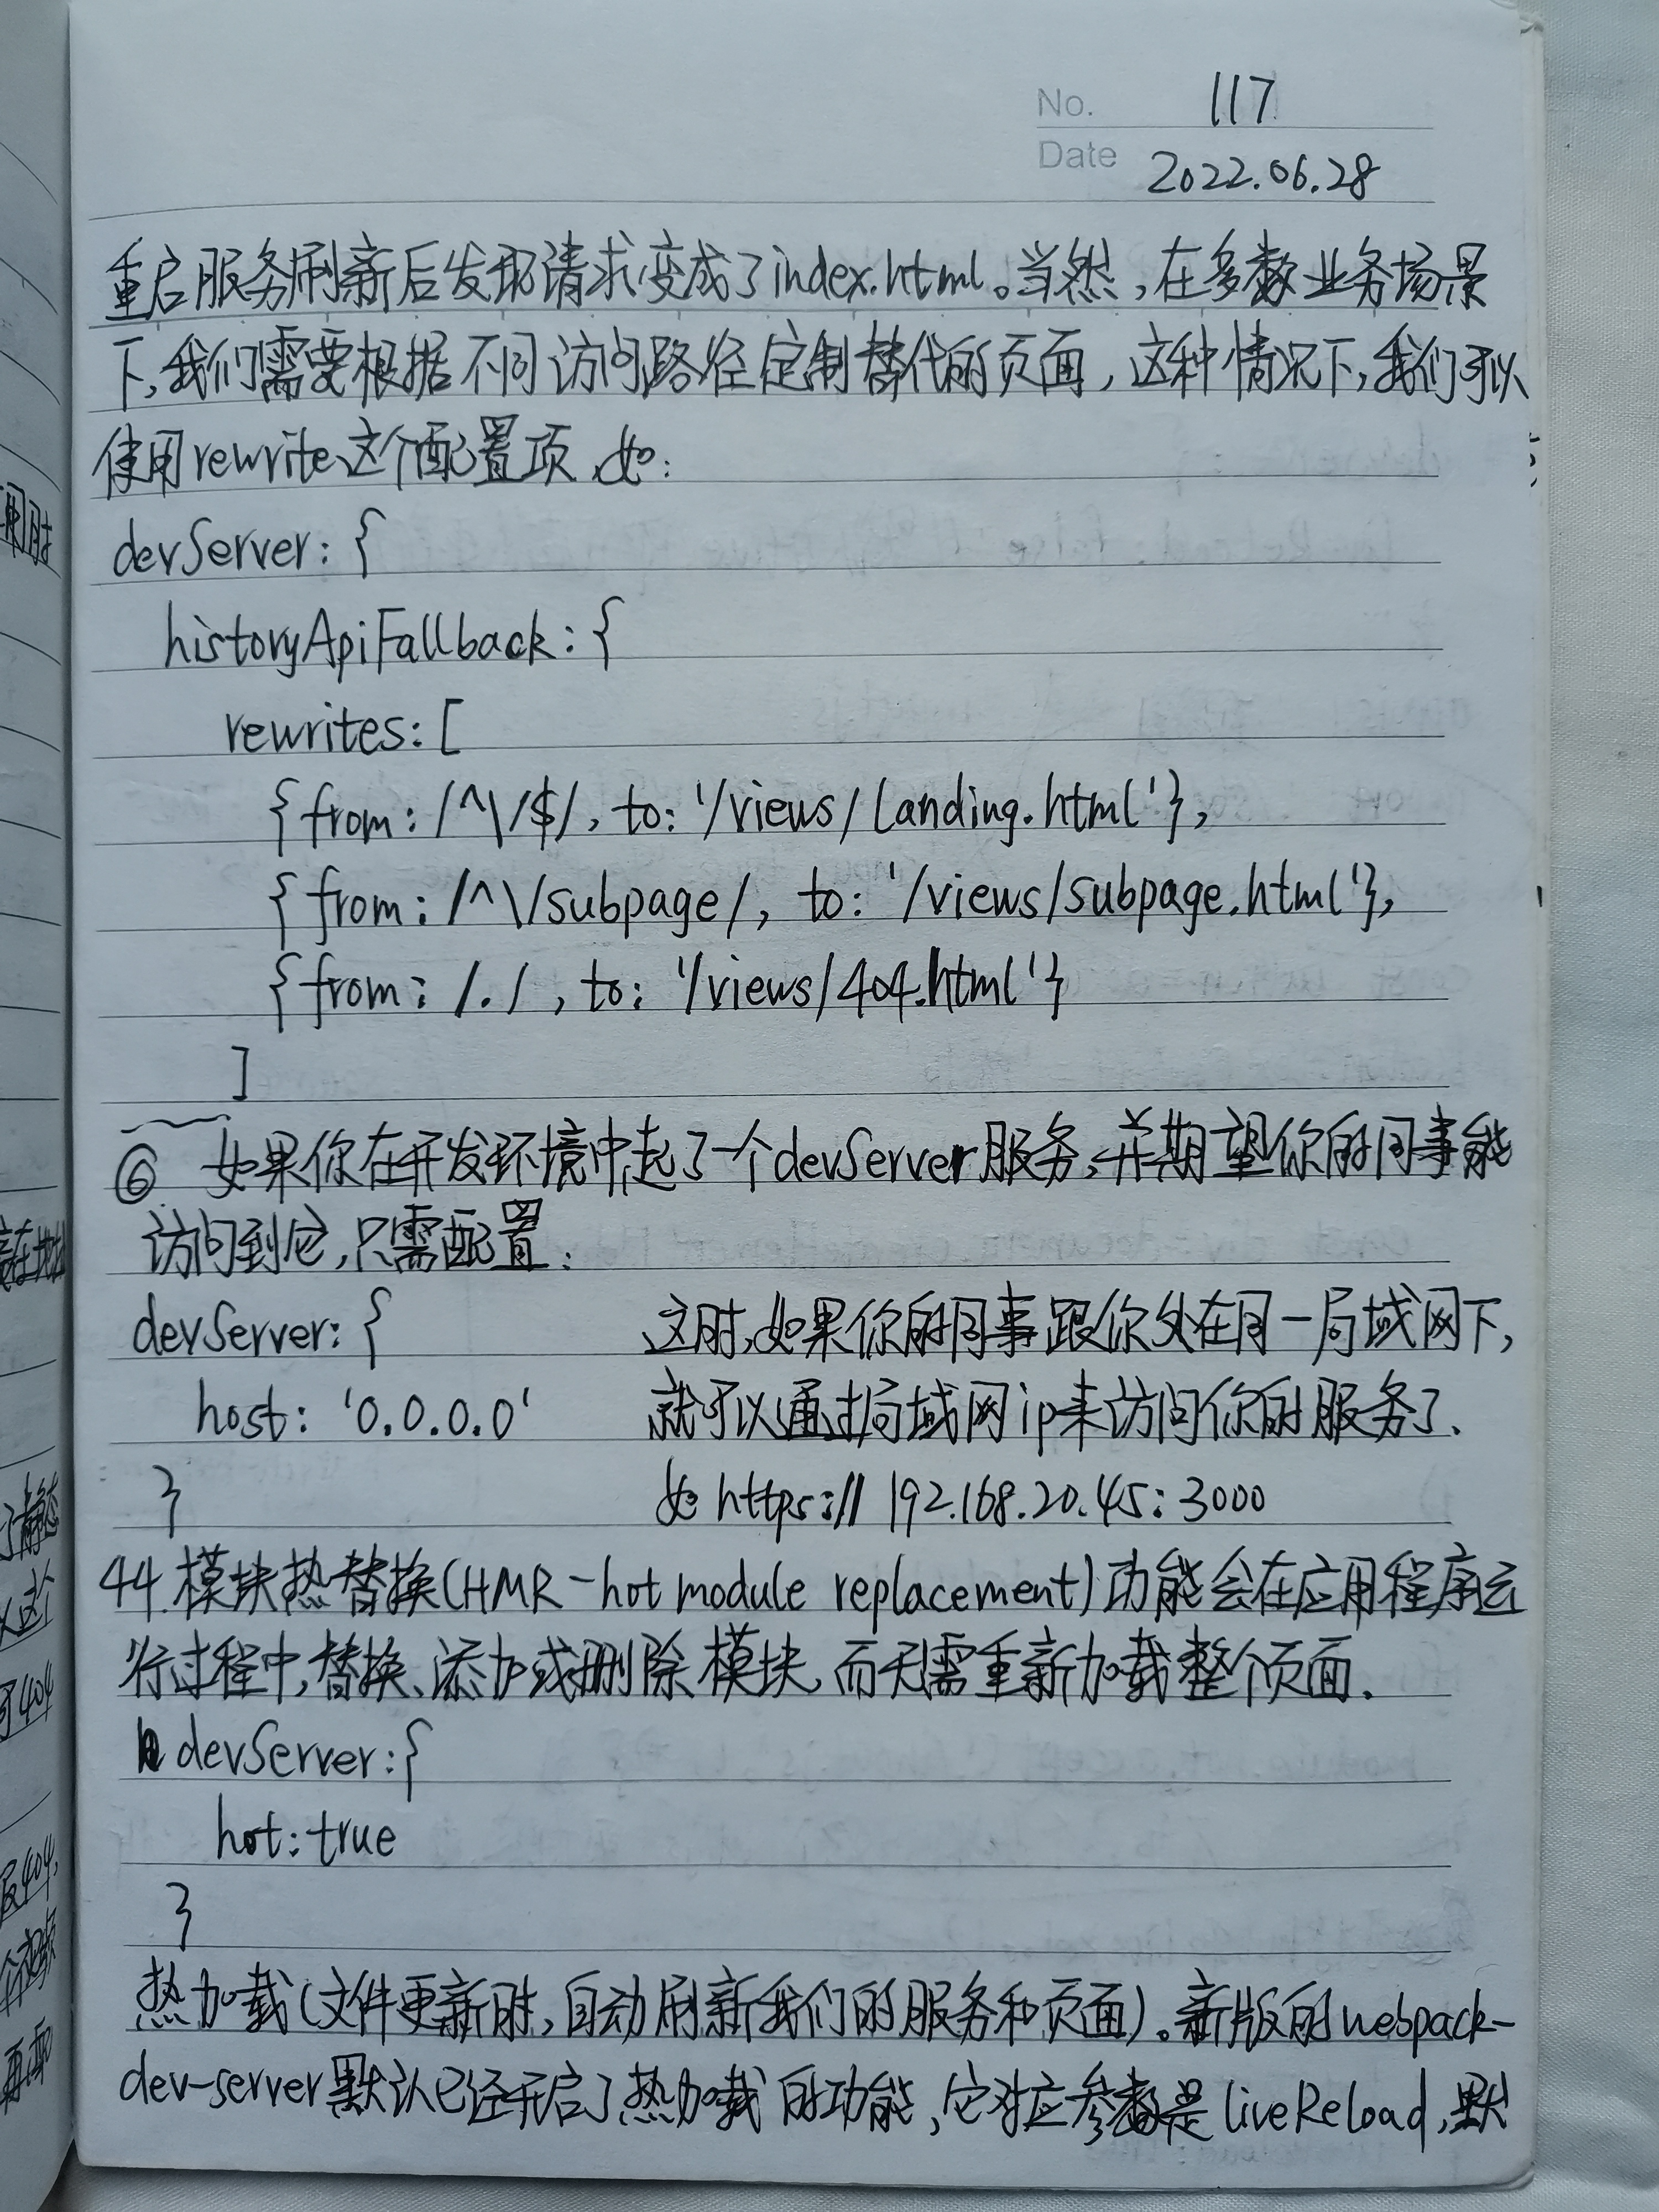 No. 117
Date 2022.06.28
重启服务刷新后发现请求变成了index.html。当然,在多数业务场景
下,我们需要根据不同访问路径定制替代的页面,这种情况下,我们可以
使用rewrite这个配置项,如:
devServer: {
historyApiFallback: {
rewrites: [
{from: /^\/$/, to: '/views/landing.html'},
{from: /^\/subpage/, to: '/views/subpage.html'},
{from: /./, to: '/views/404.html'}
]
⑥ 如果你在开发环境中起了一个devServer服务,并期望你的同事能
访问到它,只需配置:
devServer: { 这时,如果你的同事跟你处在同一局域网下,
host: '0.0.0.0' 就可以通过局域网ip来访问你的服务了.
} 如 https:// 192.168.20.45:3000
44.模块热替换(HMR-hot module replacement)功能会在应用程序运
行过程中,替换、添加或删除模块,而无需重新加载整个页面.
devServer:{
hot:true
}
热加载(文件更新时,自动刷新我们的服务和页面)。新版的webpack-
dev-server默认已经开启了热加载的功能,它对应参数是liveReload,默